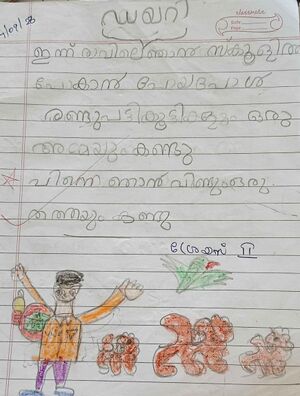 classmate
Date
Page
ഡയറി
ഇന്ന് രാവിലെ ഞാൻ സ്കൂളിൽ
പോകാൻ പോയപ്പോൾ
രണ്ടു പട്ടികുട്ടികളും ഒരു
അമ്മയും കണ്ടു
പിന്നെ ഞാൻ വിണ്ടും ഒരു
തത്തയും കണ്ടു
ശ്രേയസ് II